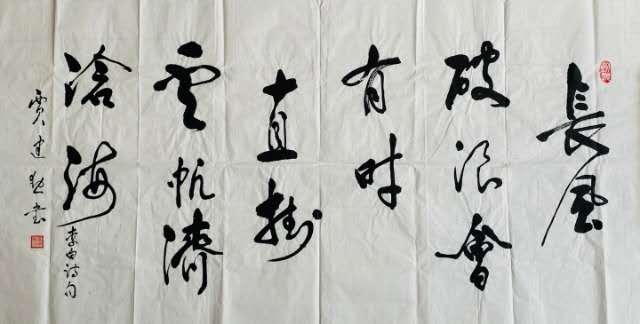 長風
破浪會
有时
直掛
雲帆濟
滄海
李白诗句
贾建
书